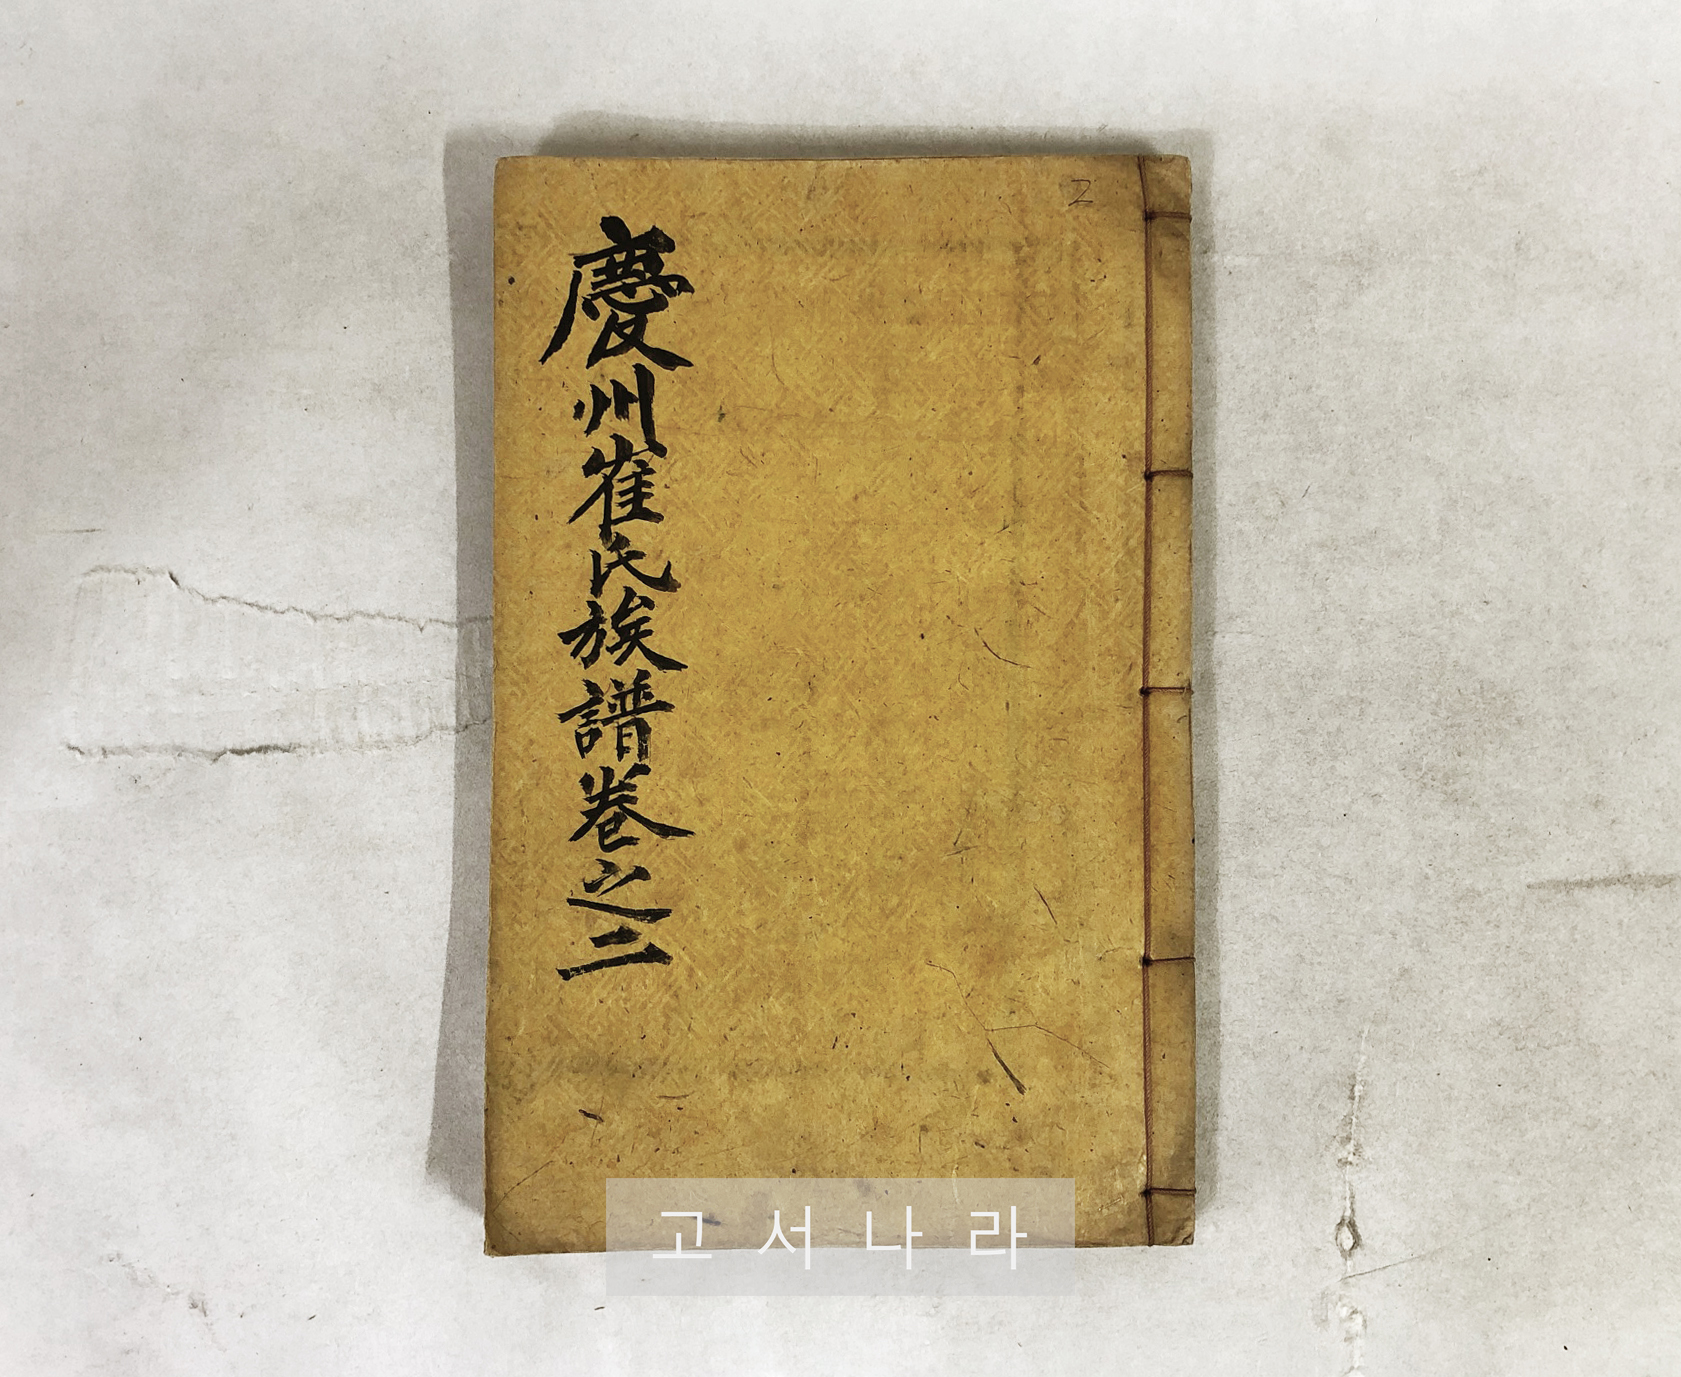 2
慶州崔氏族譜卷之二
고서나라